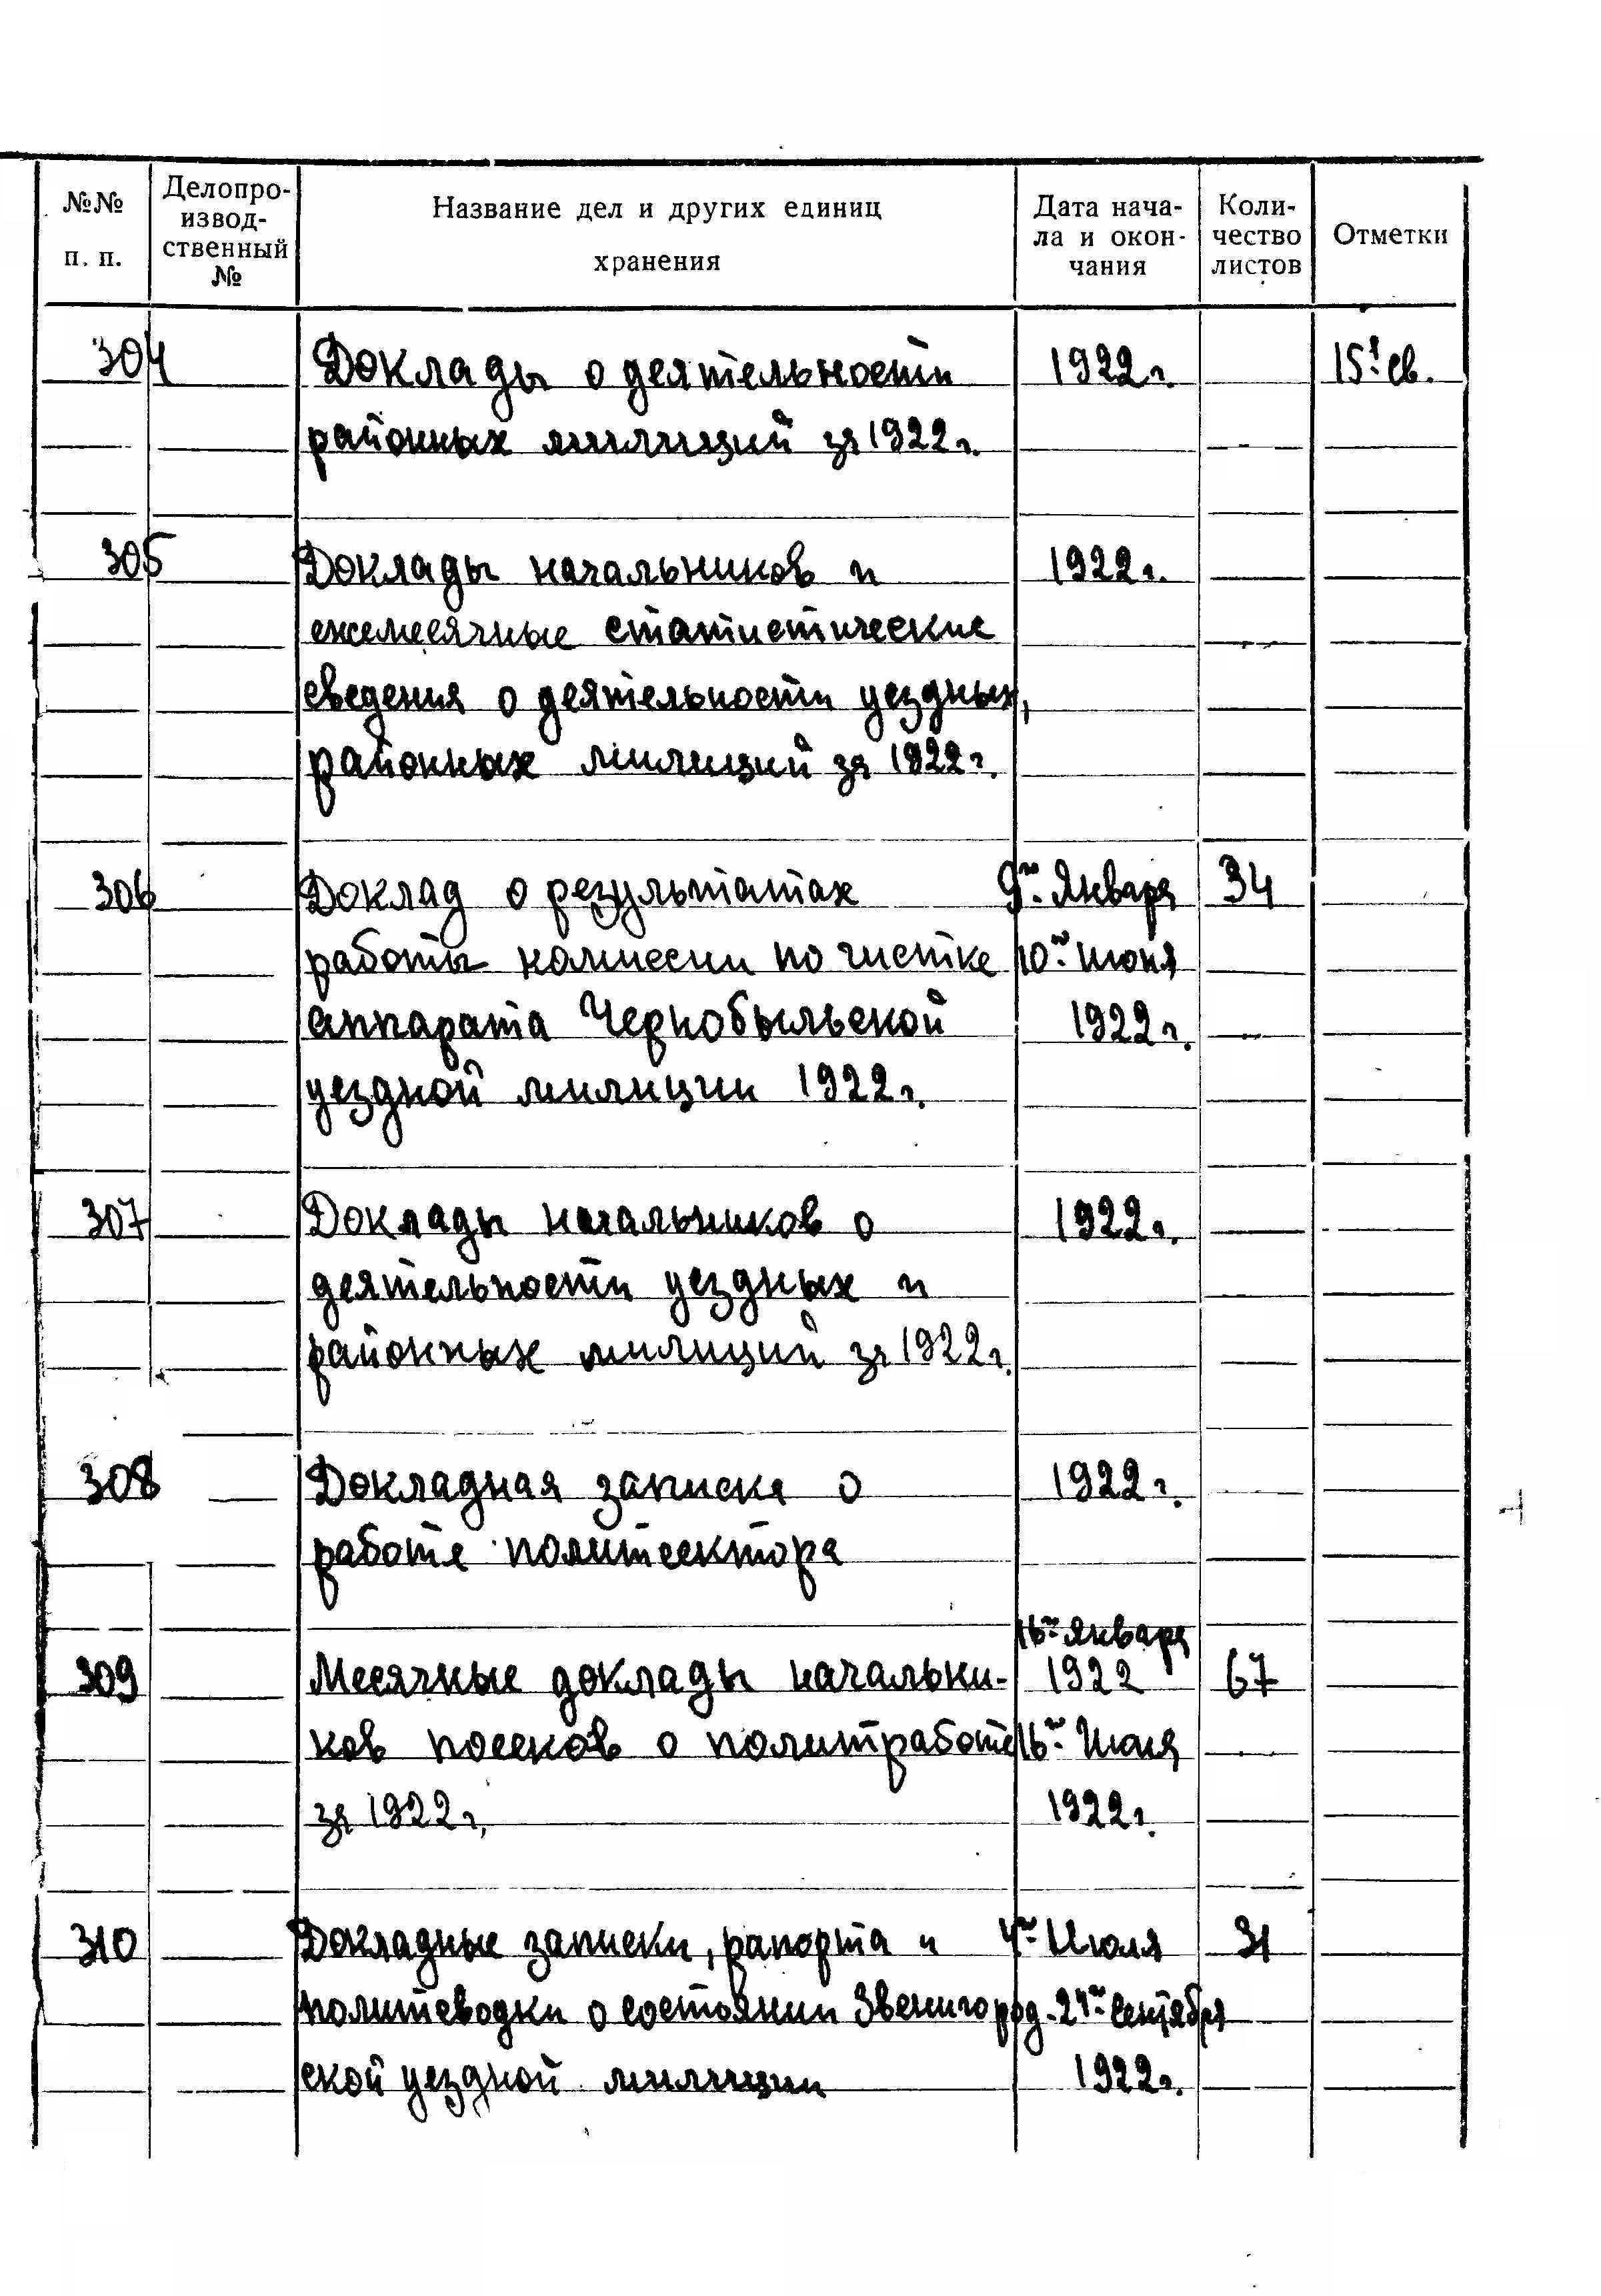 №№ п. п.
Делопро-
извод-
ственный
№
Название дел и других единиц
хранения
Дата нача-
ла и окон-
чания
Коли-
чество
листов
Отметки
304 Доклады о деятельности 1922 г.
районных милиций за 1922 г.
305 Доклады начальников и 1922 г.
ежемесячные статистические
сведения о деятельности уездных,
районных милиций за 1922 г.
306 Доклад о результатах 9го Января 34
работы комиссии по чистке 10го Июня
аппарата Чернобыльской 1922 г.
уездной милиции 1922 г.
307 Доклады начальников о 1922 г.
деятельности уездных и
районных милиций за 1922 г.
308 Докладная записка о 1922 г.
работе политсектора
16го Января
309 Месячные доклады начальни- 1922 67
ков посеков о политработе 16го Июля
за 1922 г. 1922 г.
310 Докладные записки, рапорта и 4го Июля 31
политсводки о состоянии Звенигород- 24го Сентября
ской уездной милиции 1922 г.